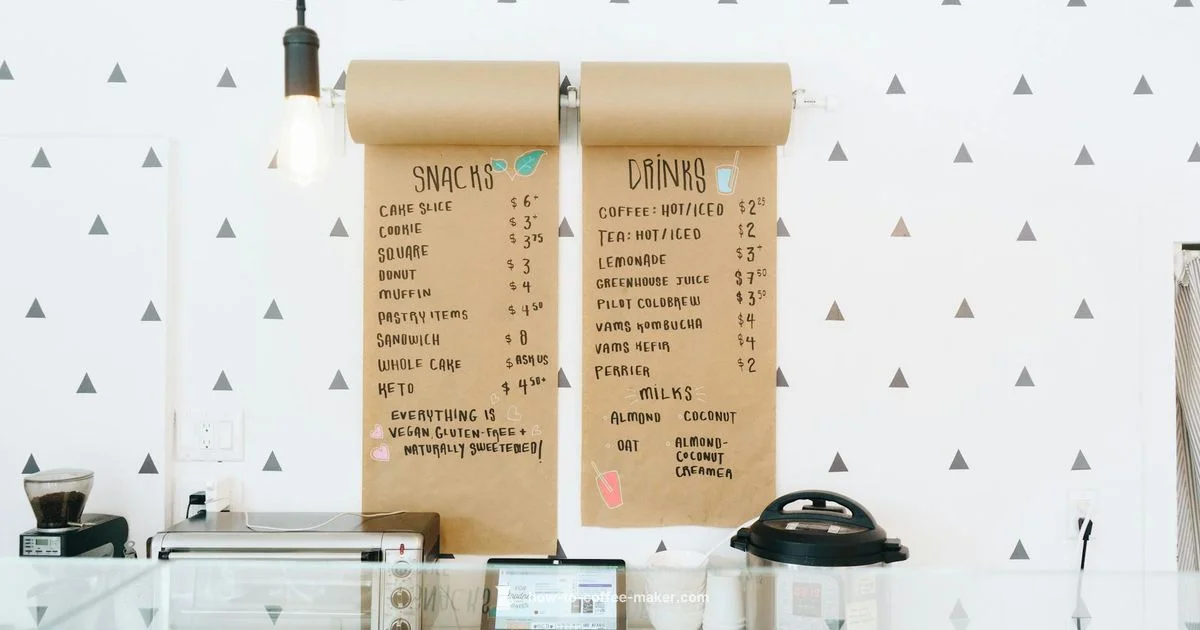 SNACKS
CAKE SLICE $6+
COOKIE $3+
SQUARE $3 75
DONUT $3
MUFFIN $4
PASTRY ITEMS $4 50
SANDWICH $8
WHOLE CAKE $ASK US
KETO $4 50+
EVERYTHING IS
VEGAN, GLUTEN-FREE +
NATURALLY SWEETENED!
DRINKS
COFFEE: HOT/ICED $2 25
TEA: HOT/ICED $2
LEMONADE $3+
GREENHOUSE JUICE $7 50
PILOT COLDBREW $3 50
VAMS KOMBUCHA $4
VAMS KEFIR $4
PERRIER $2
MILKS
ALMOND COCONUT
OAT ALMOND-
COCONUT
CREAMER
how-to-coffee-maker.com